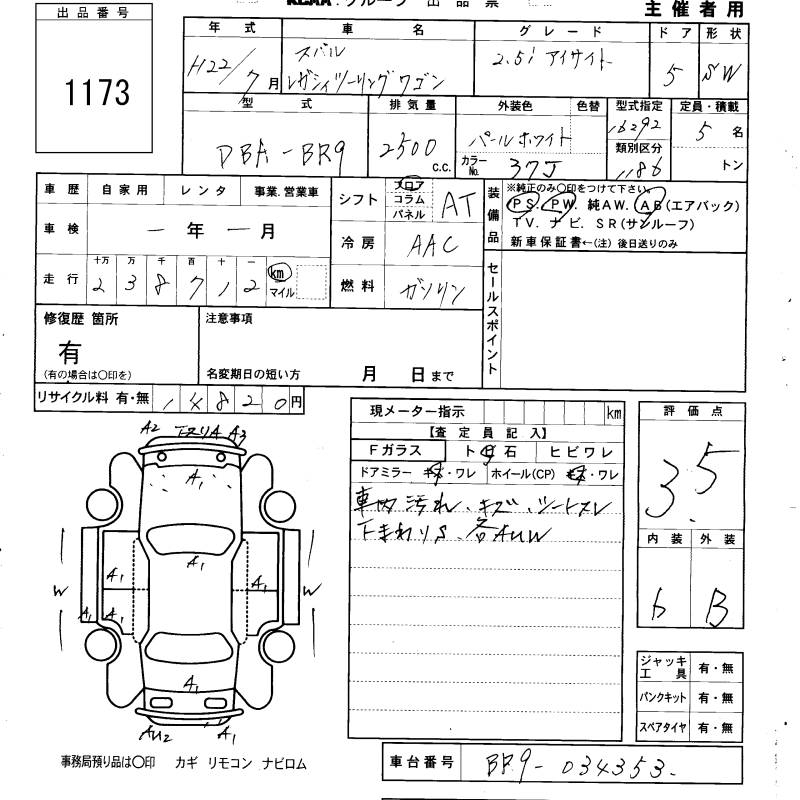 KCAA グループ 出品票
主催者用
出品番号
1173
年式 車名 グレード ドア 形状
H22/7月 スバル レガシィツーリングワゴン 2.5i アイサイト 5 SW
型式 排気量 外装色 色替 型式指定 定員・積載
DBA-BR9 2500 C.C. パールホワイト 16292 5名
カラーNo. 37J 類別区分 1186 トン
車歴 自家用 レンタ 事業.営業車
シフト フロア コラム パネル AT
装備品 ※純正のみ○印をつけて下さい。
PS. PW. 純AW. AB(エアバック)
TV. ナビ. SR(サンルーフ)
新車保証書←(注) 後日送りのみ
車検 ー年ー月
冷房 AAC
走行 十万 万 千 百 十 一
238712 km マイル
燃料 ガソリン
セールスポイント
修復歴 箇所
有
(有の場合は○印を)
注意事項
名変期日の短い方 月 日まで
リサイクル料 有・無 14820円
現メーター指示 km
【査定員記入】
Fガラス ト 石 ヒビワレ
ドアミラー キズ・ワレ ホイール(CP) キズ・ワレ
車内汚れ.キズ.シートスレ
下まわりS.各AUW
評価点
3.5
内装 外装
b B
A2 エスリA A3
A1
A1
A1 A1
W W
A1 A1
A1
AU2 A1
ジャッキ工具 有・無
パンクキット 有・無
スペアタイヤ 有・無
事務局預り品は○印 カギ リモコン ナビロム
車台番号 BR9-034353.